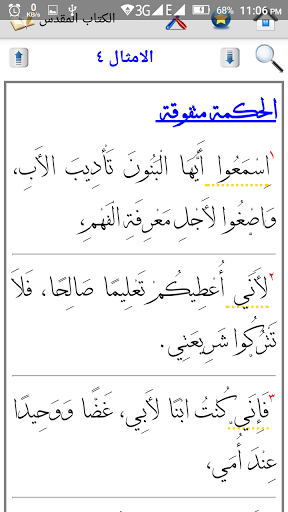 0 KB/s 3G E 68% 11:06PM
الكتاب المقدس
الامثال ٤
الحكمة متفوقة
١ اِسْمَعُوا أَيُّهَا الْبَنُونَ تَأْدِيبَ الأَبِ،
وَاصْغُوا لأَجْلِ مَعْرِفَةِ الْفَهْمِ،
٢ لأَنِّي أُعْطِيكُمْ تَعْلِيمًا صَالِحًا، فَلاَ
تَتْرُكُوا شَرِيعَتِي.
٣ فَإِنِّي كُنْتُ ابْنًا لأَبِي، غَضًّا وَوَحِيدًا
عِنْدَ أُمِّي،